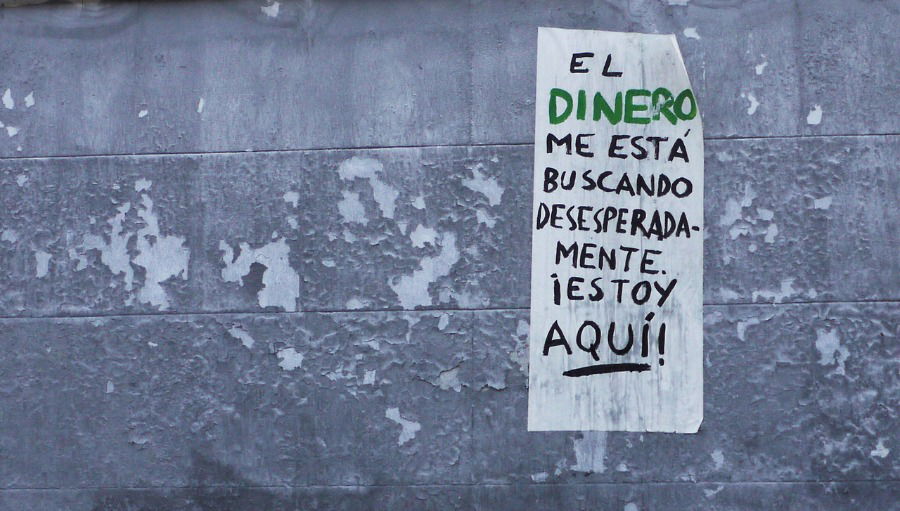 EL
DINERO
ME ESTÁ
BUSCANDO
DESESPERADA-
MENTE.
¡ESTOY
AQUÍ!